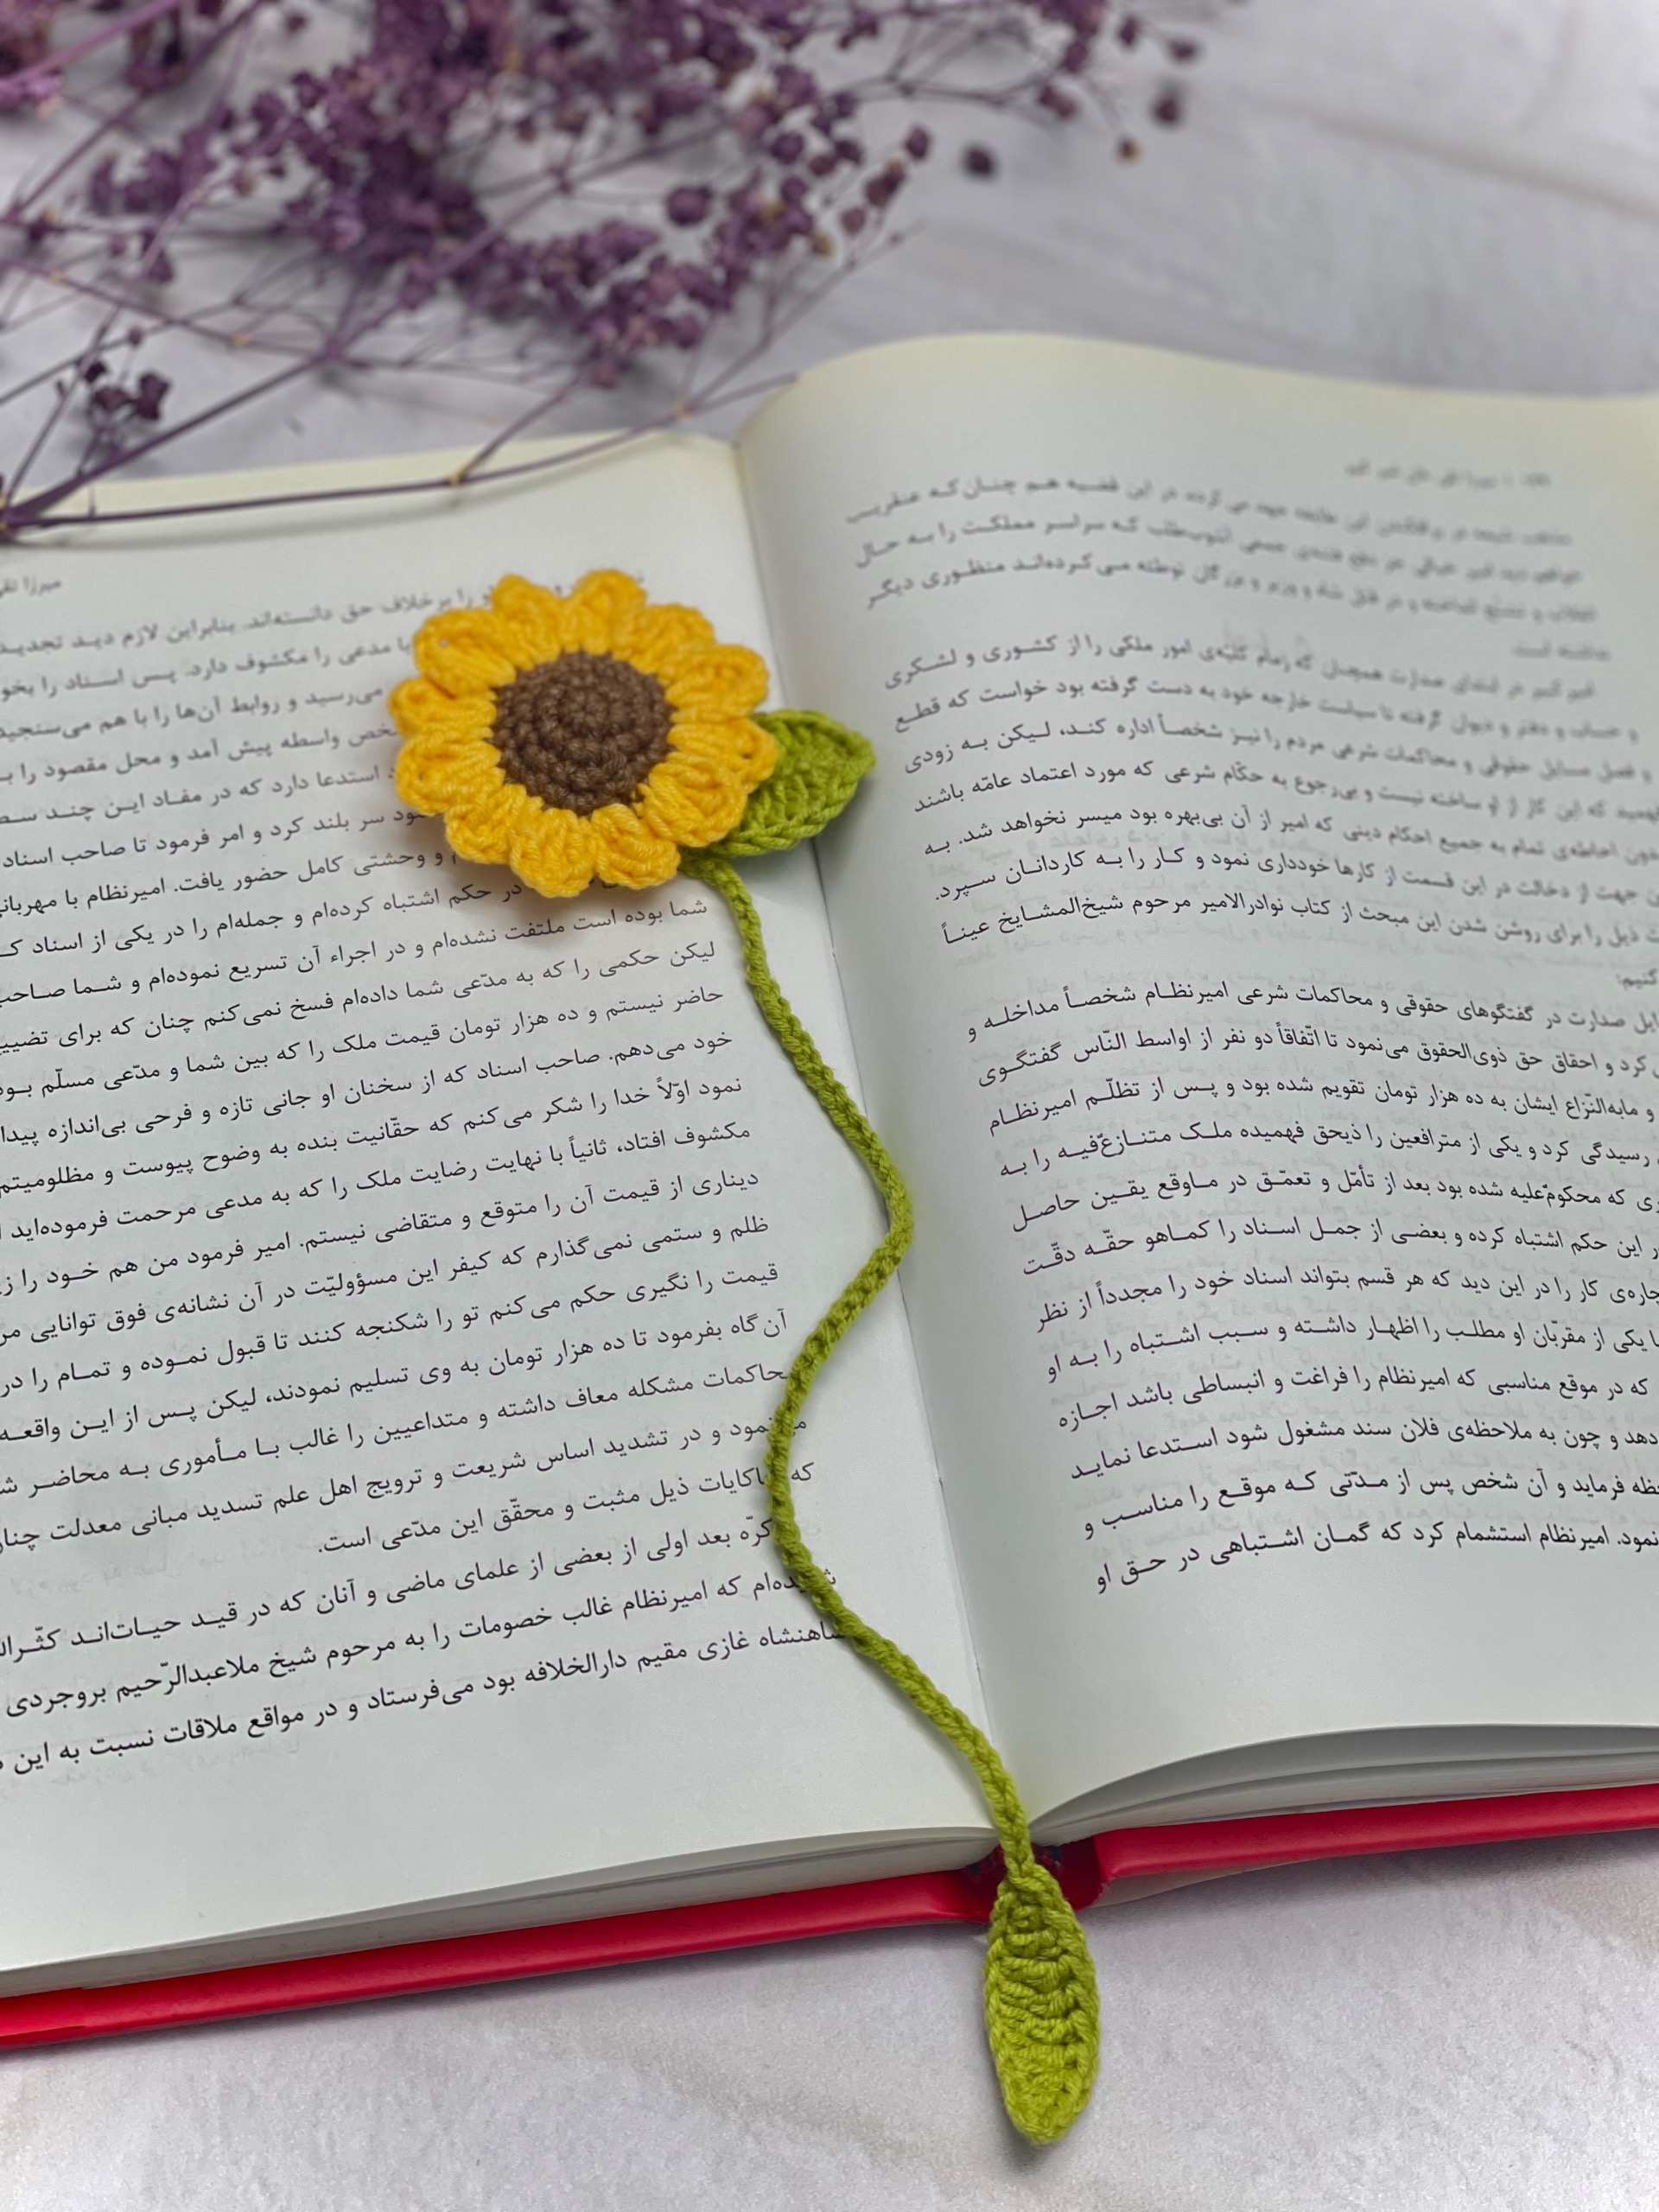 مذهب شیعه در برانگیختن این طایفه جهد می کرده در این قضیه هم چنان‌که عنقریب
خواهیم دید امیر خیالی جز دفع فتنه‌ی جمعی آشوب‌طلب که سراسر مملکت را به حال
انقلاب و تشنّج انداخته و در قتل شاه و وزیر و بزرگان توطئه می‌کرده‌اند منظوری دیگر
نداشته است.
امیرکبیر در ابتدای صدارت همچنان که زمام کلیّه‌ی امور ملکی را از کشوری و لشکری
و حساب و دفتر و دیوان گرفته تا سیاست خارجه خود به دست گرفته بود خواست که قطع
و فصل مسایل حقوقی و محاکمات شرعی مردم را نیز شخصاً اداره کند، لیکن به زودی
فهمید که این کار از او ساخته نیست و بی‌رجوع به حکّام شرعی که مورد اعتماد عامّه باشند
دون احاطه‌ی تمام به جمیع احکام دینی که امیر از آن بی‌بهره بود میسر نخواهد شد. به
جهت از دخالت در این قسمت از کارها خودداری نمود و کار را به کاردانان سپرد.
ذیل را برای روشن شدن این مبحث از کتاب نوادرالامیر مرحوم شیخ‌المشایخ عیناً
کنیم:
صدارت در گفتگوهای حقوقی و محاکمات شرعی امیرنظام شخصاً مداخله و
کرد و احقاق حق ذوی‌الحقوق می‌نمود تا اتّفاقاً دو نفر از اواسط النّاس گفتگوی
و مابه‌النّزاع ایشان به ده هزار تومان تقویم شده بود و پس از تظلّم امیرنظام
رسیدگی کرد و یکی از مترافعین را ذیحق فهمیده ملک متنازعٌ‌فیه را به
که محکومٌ‌علیه شده بود بعد از تأمّل و تعمّق در مواقع یقین حاصل
این حکم اشتباه کرده و بعضی از جمل اسناد را کماهو حقّه دقّت
کار را در این دید که هر قسم بتواند اسناد خود را مجدداً از نظر
یکی از مقرّبان او مطلب را اظهار داشته و سبب اشتباه را به او
که در موقع مناسبی که امیرنظام را فراغت و انبساطی باشد اجازه
دهد و چون به ملاحظه‌ی فلان سند مشغول شود استدعا نماید
فرماید و آن شخص پس از مدّتی که موقع را مناسب و
نمود. امیرنظام استشمام کرد که گمان اشتباهی در حق او
میرزا
را برخلاف حق دانسته‌اند. بنابراین لازم دید تجدید
با مدعی را مکشوف دارد. پس اسناد را
می‌رسید و روابط آن‌ها را با هم می‌سنجید
واسطه پیش آمد و محل مقصود را
استدعا دارد که در مفاد این چند
سر بلند کرد و امر فرمود تا صاحب اسناد
و وحشتی کامل حضور یافت. امیرنظام با
در حکم اشتباه کرده‌ام و جمله‌ام را در یکی از اسناد
شما بوده است ملتفت نشده‌ام و در اجراء آن تسریع نموده‌ام و شما
لیکن حکمی را که به مدّعی شما داده‌ام فسخ نمی‌کنم چنان که برای
حاضر نیستم و ده هزار تومان قیمت ملک را که بین شما و مدّعی مسلّم
خود می‌دهم. صاحب اسناد که از سخنان او جانی تازه و فرحی بی‌اندازه
نمود اوّلاً خدا را شکر می‌کنم که حقّانیت بنده به وضوح پیوست و مظلومیتم
مکشوف افتاد، ثانیاً با نهایت رضایت ملک را که به مدعی مرحمت فرموده‌اید
دیناری از قیمت آن را متوقع و متقاضی نیستم. امیر فرمود من هم خود را
ظلم و ستمی نمی‌گذارم که کیفر این مسؤولیّت در آن نشانه‌ی فوق توانایی
قیمت را نگیری حکم می‌کنم تو را شکنجه کنند تا قبول نموده و تمام را
آن‌گاه بفرمود تا ده هزار تومان به وی تسلیم نمودند، لیکن پس از این واقعه
محاکمات مشکله معاف داشته و متداعیین را غالب با مأموری به محاضر
می‌نمود و در تشدید اساس شریعت و ترویج اهل علم تسدید مبانی معدلت
که حاکایات ذیل مثبت و محقّق این مدّعی است.
کرّه بعد اولی از بعضی از علمای ماضی و آنان که در قید حیات‌اند
شنیده‌ام که امیرنظام غالب خصومات را به مرحوم شیخ ملاعبدالرّحیم بروجردی
شاهنشاه غازی مقیم دارالخلافه بود می‌فرستاد و در مواقع ملاقات نسبت به این